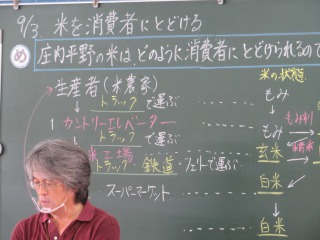 9/3 米を消費者にとどける
め 庄内平野の米は、どのように消費者にとどけられるので
生産者(米農家)
トラックで運ぶ
カントリーエレベーター
トラックで運ぶ
米工場
トラック 鉄道 フェリーで運ぶ
スーパーマーケット
米の状態
もみ
もみ
もみすり
玄米
精米
白米
白米